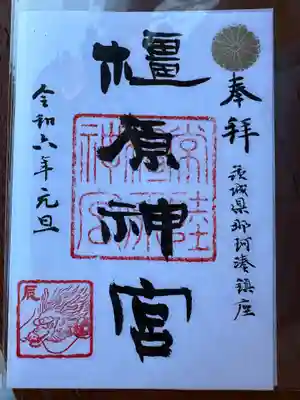 奉拝
茨城県那珂湊鎮座
橿原神宮
常陸
神宮
令和六年元旦
辰